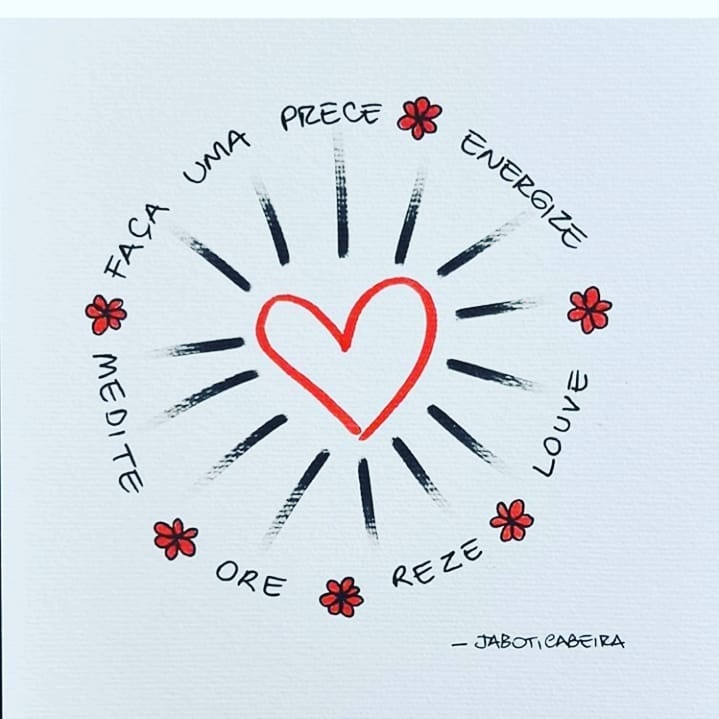 FAÇA UMA PRECE
ENERGIZE
LOUVE
REZE
ORE
MEDITE
— JABOTICABEIRA